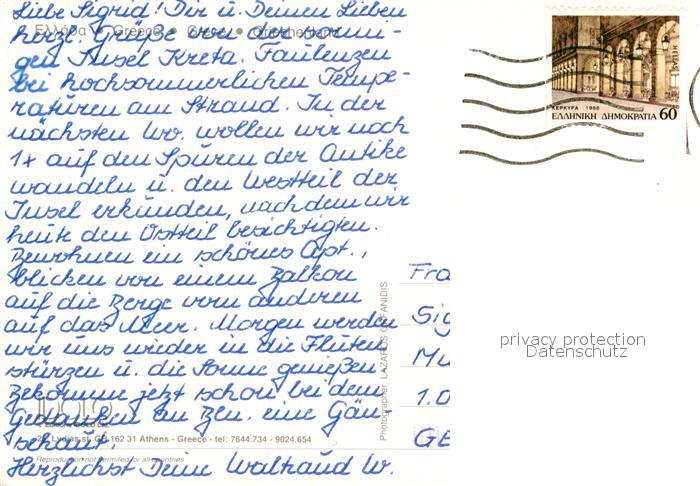 Liebe Sigrid! Dir u. Deinen Lieben
herzl. Grüße von der sonni-
gen Insel Kreta. Faulenzen
bei hochsommerlichen Tempe-
raturen am Strand. In der
nächsten Wo. wollen wir noch
1x auf den Spuren der Antike
wandeln u. den Westteil der
Insel erkunden, nachdem wir
heute den Ostteil besichtigen.
Bewohnen ein schönes Apt.,
blicken von einem Balkon
auf die Berge vom anderen
auf das Meer. Morgen werden
wir uns wieder in die Fluten
stürzen u. die Sonne genießen.
Bekomme jetzt schon bei dem
Gedanken an Zen. eine Gän-
sehaut.
Herzlichst Deine Waltraud W.
Ελλάδα • Greece • Grèce • Griechenland
Lydias st. GR 162 31 Athens - Greece - tel: 7644.734 - 9024.654
Reproduction not permited for all countries
Photographer: LAZAROS
HELLAS
ΚΕΡΚΥΡΑ 1988
ΕΛΛΗΝΙΚΗ ΔΗΜΟΚΡΑΤΙΑ 60
Fra
Sig
Mu
1.0
GE
privacy protection
Datenschutz